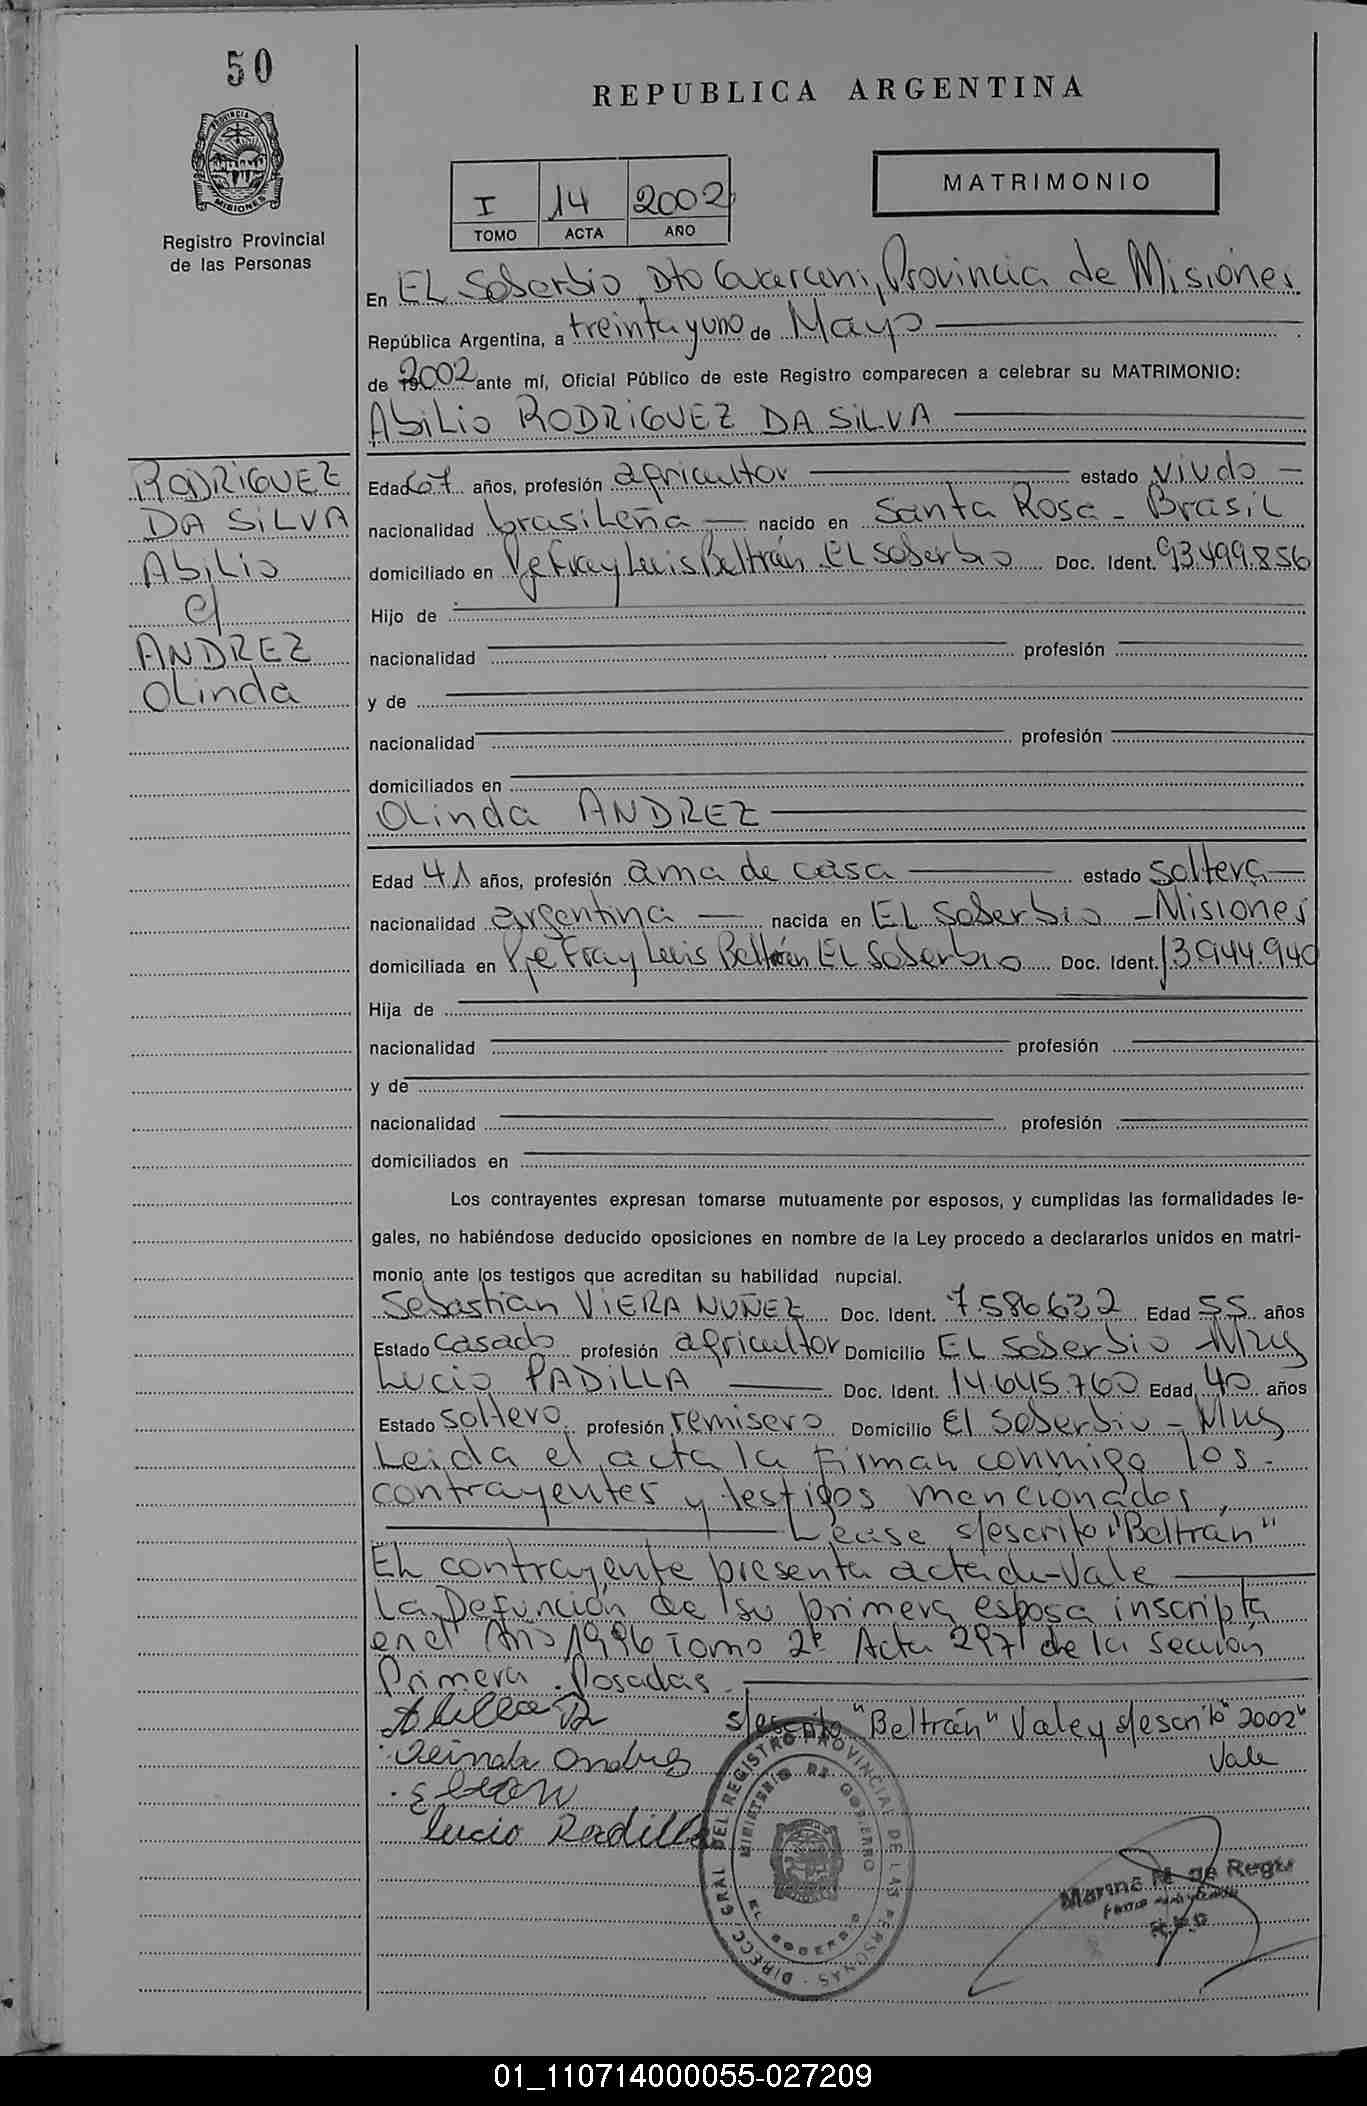 50
REPUBLICA ARGENTINA
PROVINCIA DE
MISIONES
Registro Provincial
de las Personas
I 14 2002
TOMO ACTA AÑO
MATRIMONIO
En EL Soberbio, Dto Guarani, Provincia de Misiones
República Argentina, a treinta y uno de Mayo
de 2002 ante mí, Oficial Público de este Registro comparecen a celebrar su MATRIMONIO:
Abilio RODRIGUEZ DA SILVA
RODRIGUEZ
DA SILVA
Abilio
c/
ANDREZ
Olinda
Edad 67 años, profesión agricultor estado viudo
nacionalidad brasileña nacido en Santa Rosa - Brasil
domiciliado en Pje Fray Luis Beltrán. EL Soberbio Doc. Ident. 93.499.856
Hijo de
nacionalidad profesión
y de
nacionalidad profesión
domiciliados en
Olinda ANDREZ
Edad 41 años, profesión ama de casa estado soltera
nacionalidad argentina nacida en EL Soberbio - Misiones
domiciliada en Pje Fray Luis Beltrán EL Soberbio Doc. Ident. 13.944.940
Hija de
nacionalidad profesión
y de
nacionalidad profesión
domiciliados en
Los contrayentes expresan tomarse mutuamente por esposos, y cumplidas las formalidades le-
gales, no habiéndose deducido oposiciones en nombre de la Ley procedo a declararlos unidos en matri-
monio ante los testigos que acreditan su habilidad nupcial.
Sebastian VIERA NUÑEZ Doc. Ident. 7.586.632 Edad 55 años
Estado casado profesión agricultor Domicilio EL Soberbio - Mnes
Lucio PADILLA Doc. Ident. 14.645.760 Edad 40 años
Estado soltero profesión remisero Domicilio El Soberbio - Mnes
Leida el acta la firman conmigo los
contrayentes y testigos mencionados,
Lease s/escrito "Beltrán"
EL contrayente presenta acta de Vale
La Defunción de su primera esposa inscripta
en el Año 1996 Tomo 2º Acta 297 de la sección
Primera. Posadas.
s/escrito "Beltrán" Vale y s/escrito "2002"
Vale
Olinda Andrez
Lucio Padilla
DIRECC. GRAL DEL REGISTRO PROVINCIAL DE LAS PERSONAS
MINISTERIO DE GOBIERNO
EL SOBERBIO
Marina
01_110714000055-027209